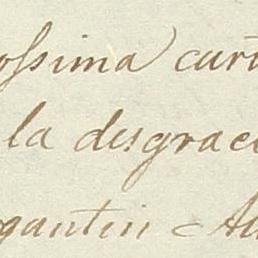 ossima cart
la disgrac
gantin Au